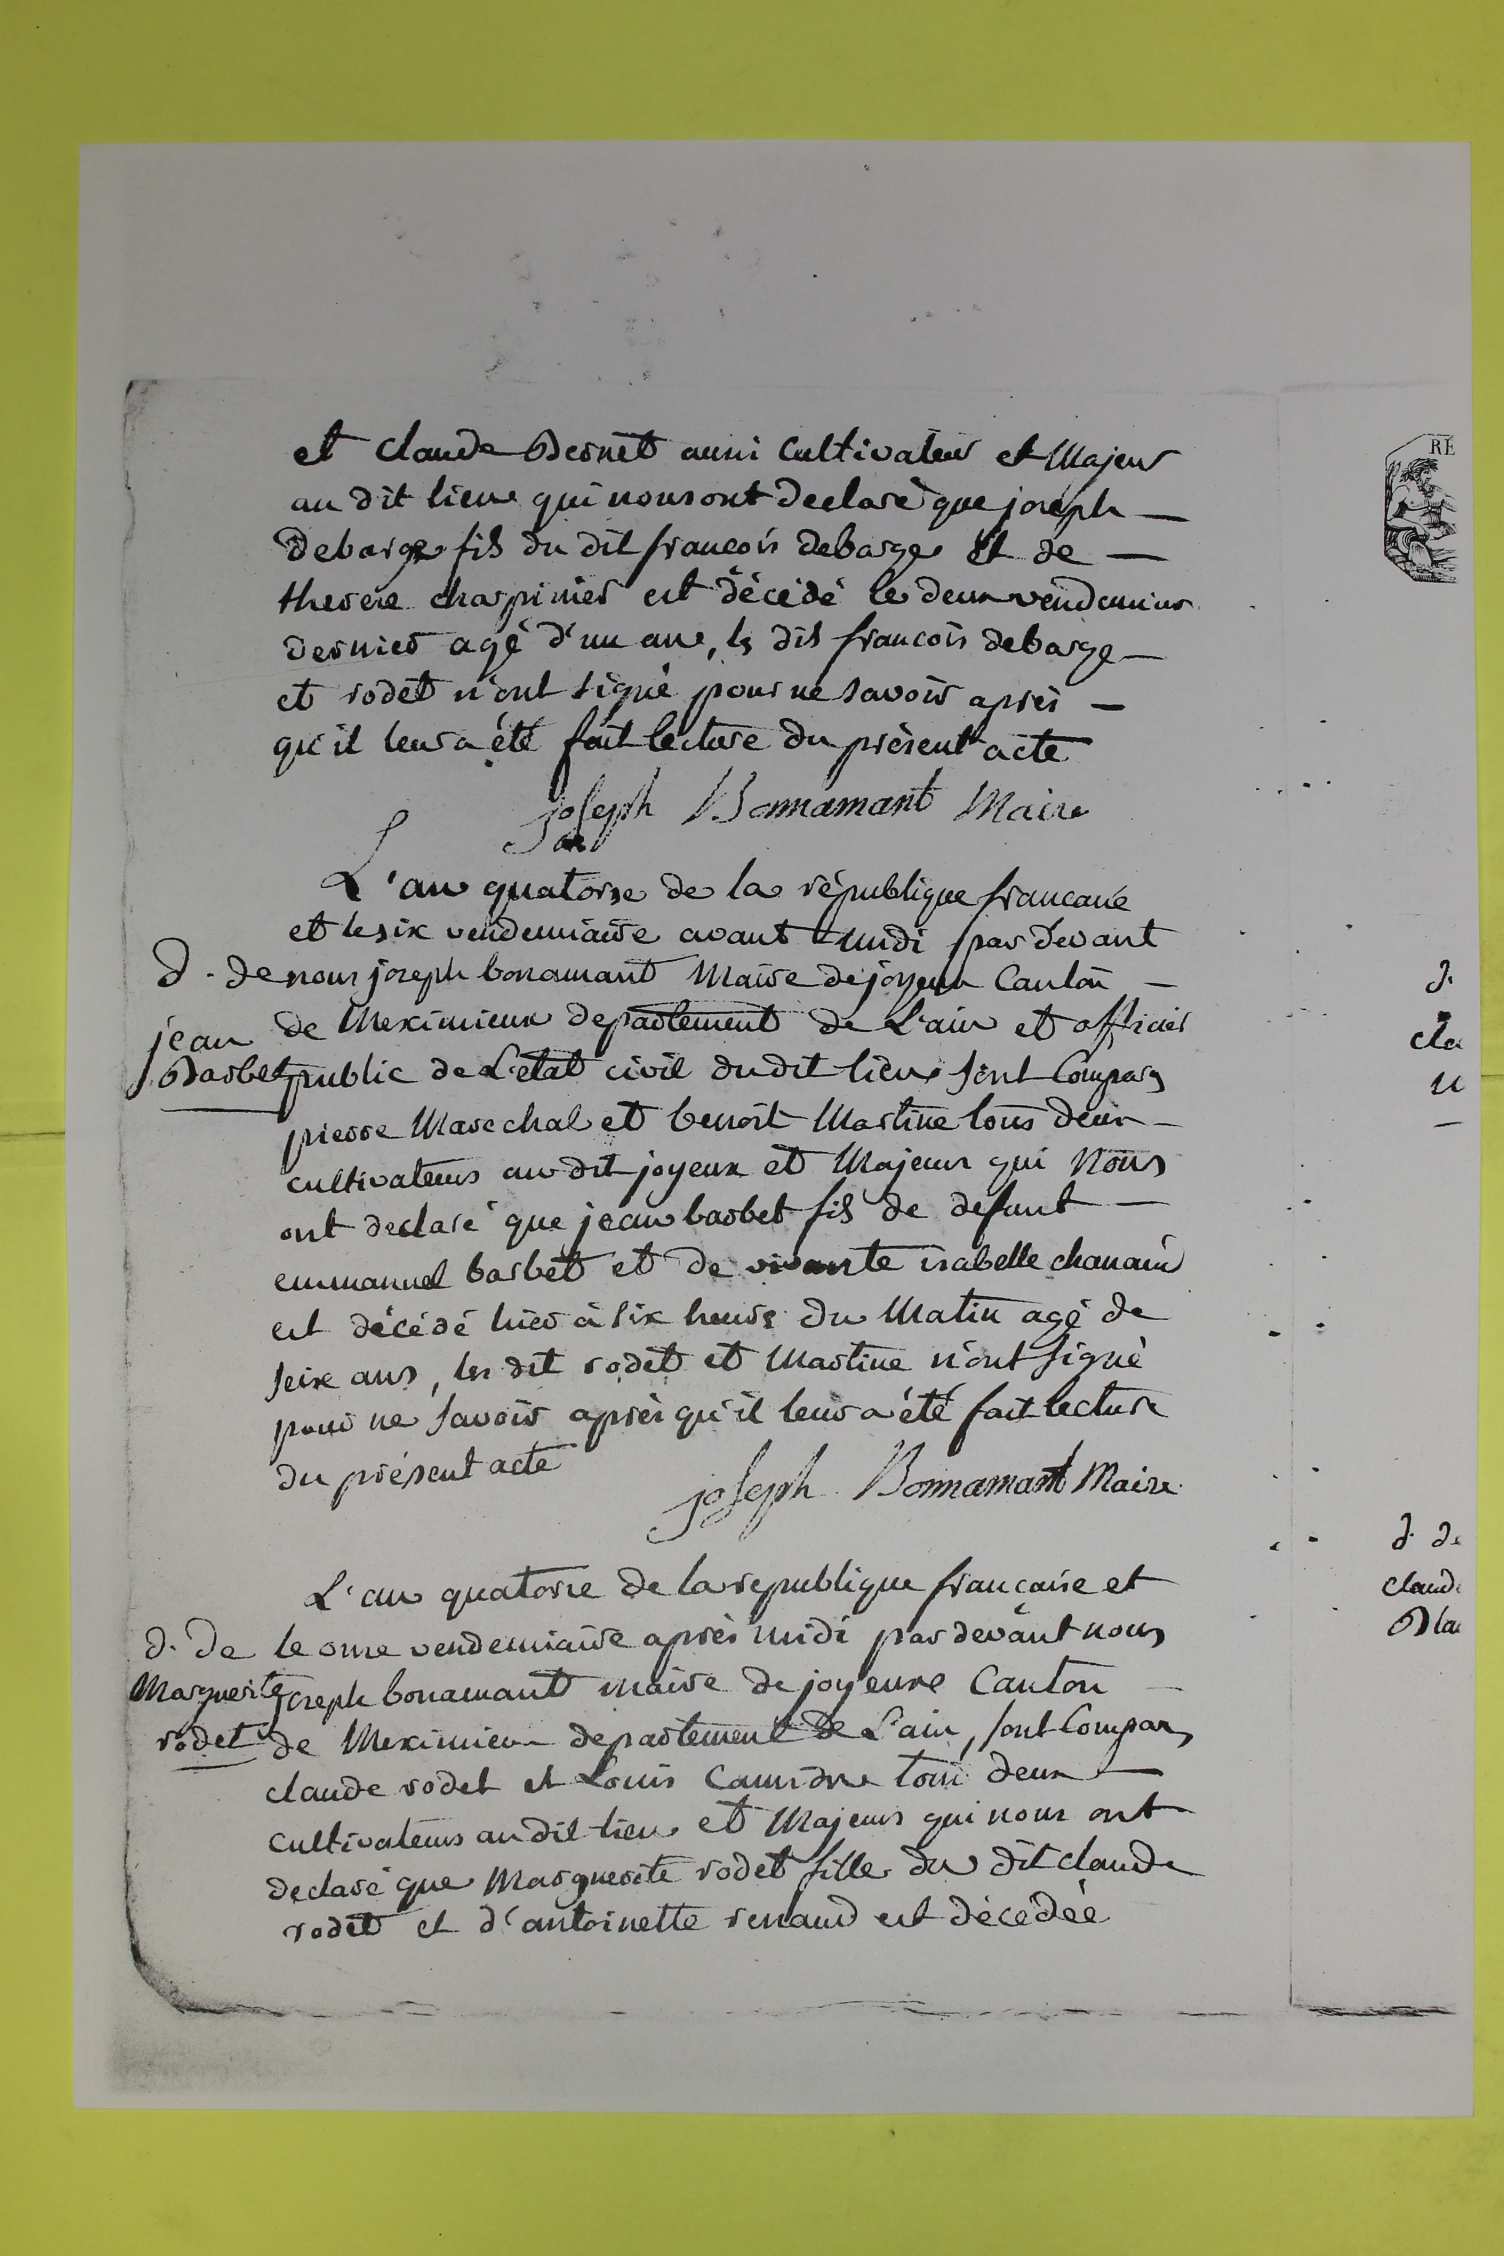 et claude Bernet aussi Cultivateur et Majeur
au dit lieu qui nous ont declaré que joseph —
debarge fils du dit francois debarge et de —
therese charpinier est décédé le deux vendemier
dernier agé d'un an, ls dit francois debarge —
et rodet n'ont signé pour ne savoir après —
qu'il leur a été fait lecture du présent acte
joseph Bonnamant Maire
L'an quatorse de la république francaise
et le six vendemiaire avant midi par devant
d. de nous joseph bonamant Maire de joyeux Canton —
jean de Meximieux departement de L'ain et officier
Barbet public de L'état civil du dit lieu sont Comparus
pierre Marechal et benoit Martine tous deux —
cultivateurs au dit joyeux et Majeurs qui Nous
ont declaré que jean barbet fils de defunt —
emmanuel barbet et de vivante isabelle chanain
est décédé hier à six heures du Matin agé de
seix ans, les dit rodet et Martine n'ont signé
pour ne savoir après qu'il leur a été fait lecture
du présent acte
joseph Bonnamant Maire
L'an quatorse de la republique française et
d. de le onse vendemiaire après midi par devant nous
Marguerite joseph bonamant maire de joyeuxe Canton —
rodet de Meximieux departement de L'ain, sont Comparus
claude rodet et Louis tous deux —
cultivateurs au dit lieu et Majeurs qui nous ont
declaré que Marguerite rodet fille du dit claude
rodet et d'antoinette renaud est décédée
RÉ
d.
cla
d. de
claude
Bla